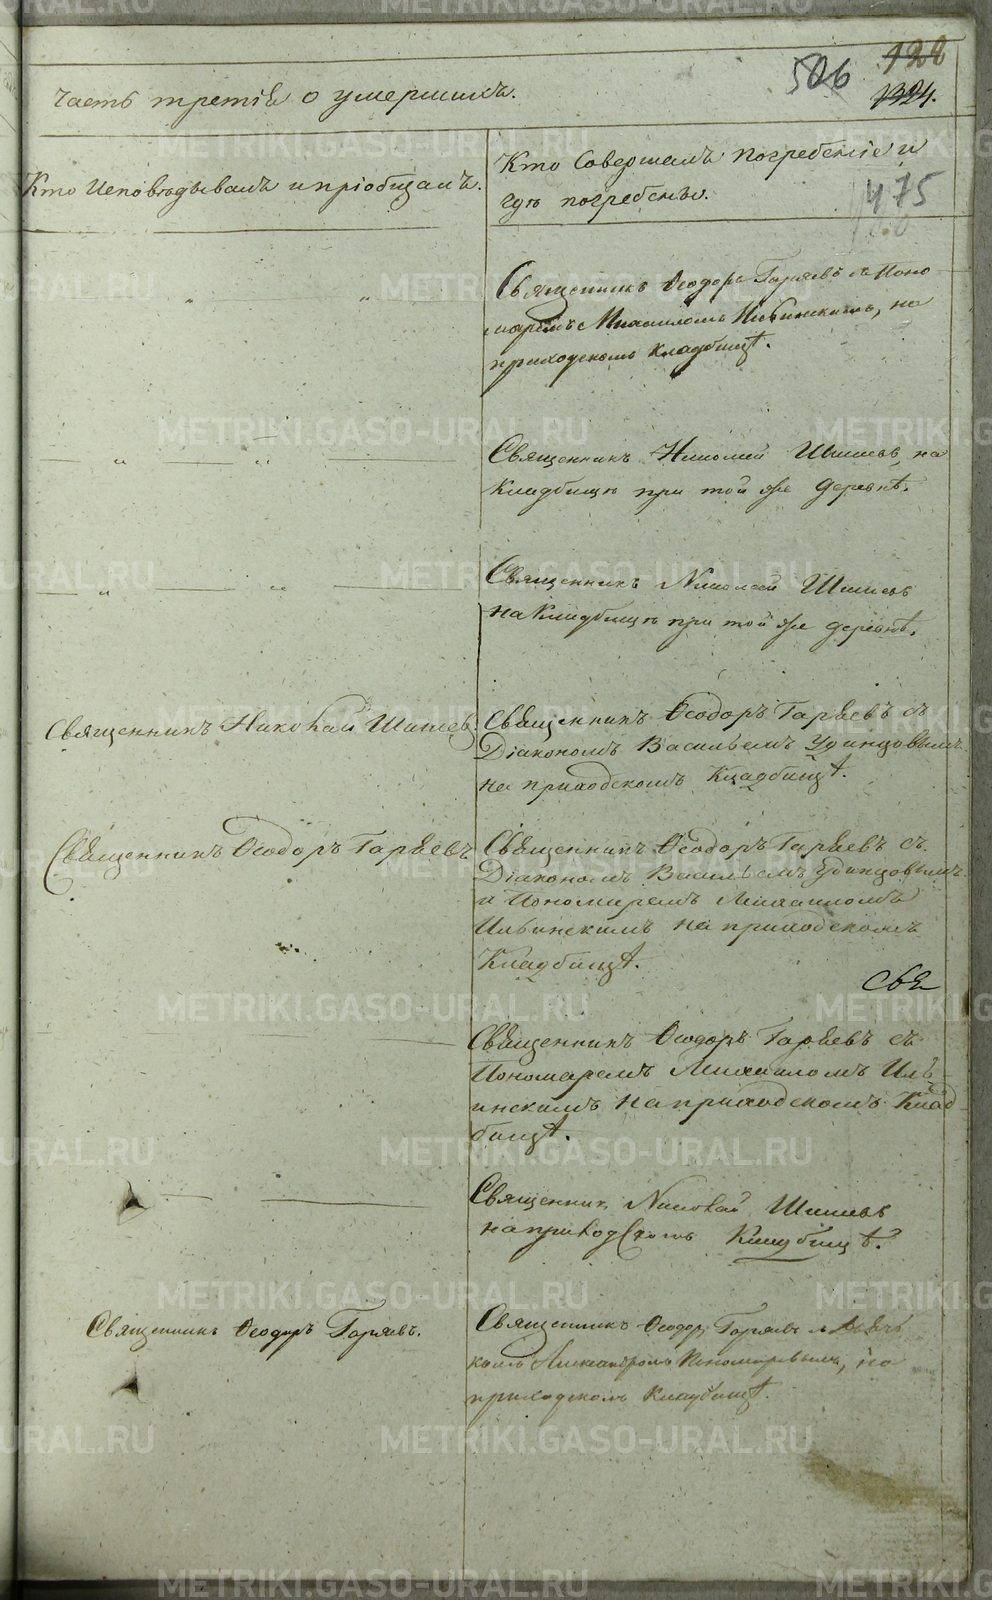 128
506
1324.
Часть третія о умершихъ.
Кто Исповѣдывалъ и пріобщалъ.
Кто Совершалъ погребеніе и
гдѣ погребены.
475
Священникъ Ѳеодоръ Гаряевъ съ Поно
маремъ Михаиломъ Ильинскимъ, на
приходскомъ кладбищѣ.
Священникъ Николай Шишевъ, на
Кладбищѣ при той же деревнѣ.
Священникъ Николай Шишевъ
на Кладбищѣ при той же деревнѣ.
Священникъ Николай Шишевъ
Священникъ Ѳеодоръ Гаряевъ съ
Діакономъ Васильемъ Удинцовымъ
на приходскомъ Кладбищѣ.
Священникъ Ѳеодоръ Гаряевъ
Священникъ Ѳеодоръ Гаряевъ съ
Діакономъ Васильемъ Удинцовымъ
и Пономаремъ Михаиломъ
Ильинскимъ на приходскомъ
Кладбищѣ.
Свя
Священникъ Ѳеодоръ Гаряевъ съ
Пономаремъ Михаиломъ Иль
инскимъ на приходскомъ Клад
бищѣ.
Священникъ Николай Шишевъ
на приходскомъ Кладбищѣ.
Священникъ Ѳеодоръ Гаряевъ.
Священникъ Ѳеодоръ Гаряевъ съ Дьяч
комъ Александромъ Пономаревымъ, на
приходскомъ кладбищѣ.
METRIKI.GASO-URAL.RU